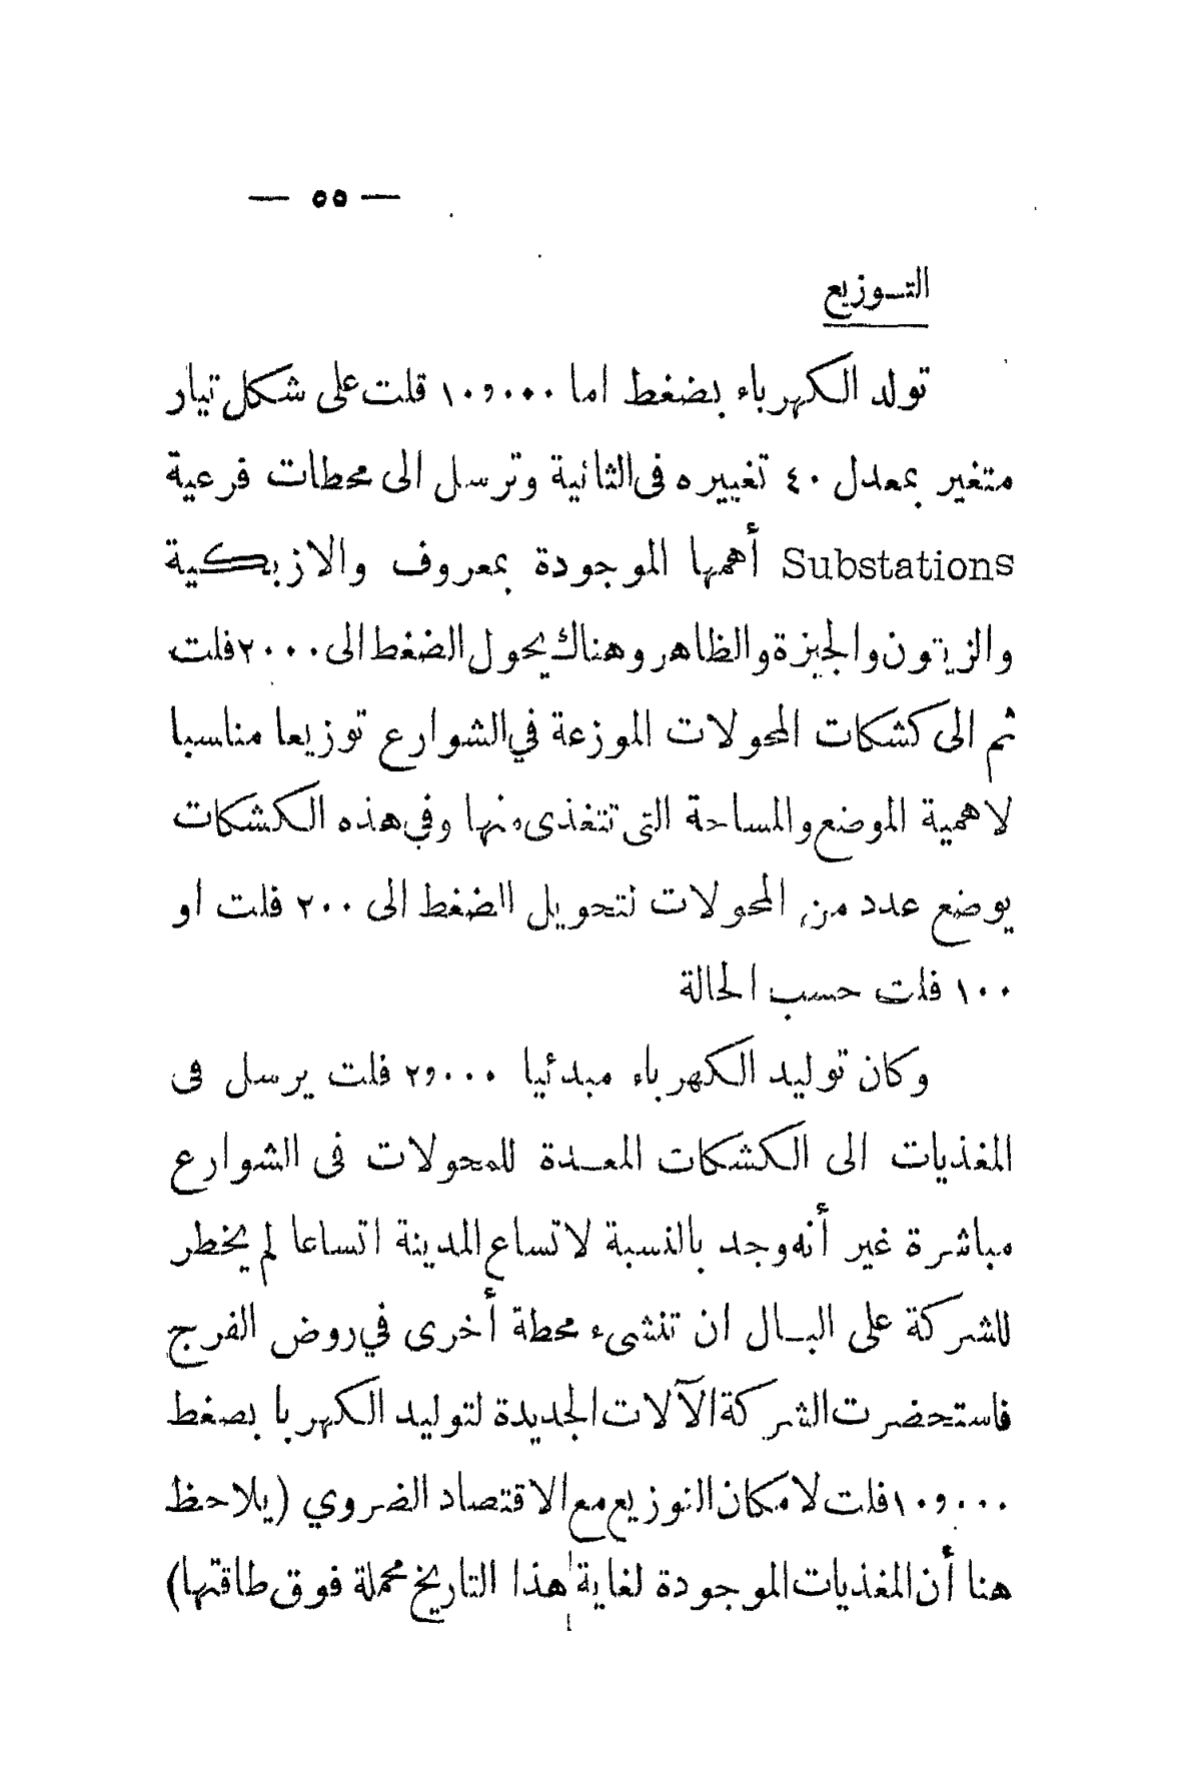 — ٥٥ —
التـوزيع
تولد الكهرباء بضغط اما ١٠و٠٠٠ قلت على شكل تيار
متغير بمعدل ٤٠ تغييره فى الثانية وترسل الى محطات فرعية
Substations أهمها الموجودة بمعروف والازبكية
والزيتون والجيزة والظاهر وهناك يحول الضغط الى ٢٠٠٠ فلت
ثم الى كشكات المحولات الموزعة في الشوارع توزيعا مناسبا
لاهمية الموضع والمساحة التى تتغذى منها وفي هذه الكشكات
يوضع عدد من المحولات لتحويل الضغط الى ٢٠٠ فلت او
١٠٠ فلت حسب الحالة
وكان توليد الكهرباء مبدئيا ٢و٠٠٠ فلت يرسل فى
المغذيات الى الكشكات المعـدة للمحولات فى الشوارع
مباشرة غير أنه وجد بالنسبة لاتساع المدينة اتساعا لم يخطر
للشركة على البـال ان تنشىء محطة أخرى في روض الفرج
فاستحضرت الشركة الآلات الجديدة لتوليد الكهربا بضغط
١٠و٠٠٠ فلت لامكان التوزيع مع الاقتصاد الضروي (يلاحظ
هنا أن المغذيات الموجودة لغاية هذا التاريخ محملة فوق طاقتها)